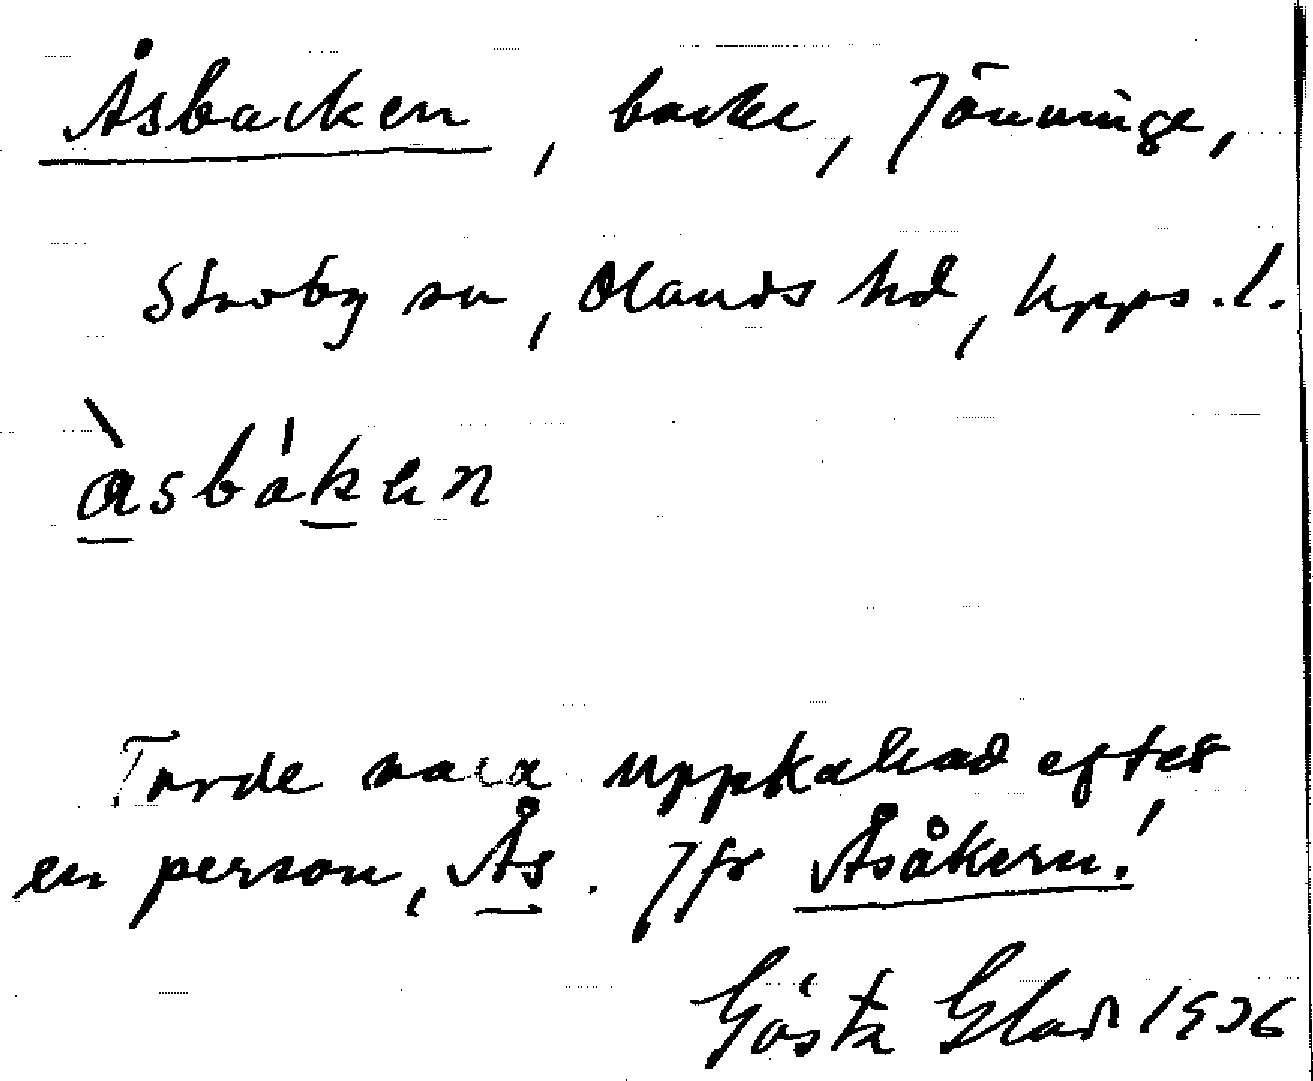 Åsbacken, backe, Jönninge,
Skäfby sn, Olands hd, Upps. l.
àsbáken
Torde vara uppkallad efter
en person, Ås. Jfr Åsåkern!
Gösta Glad 1936